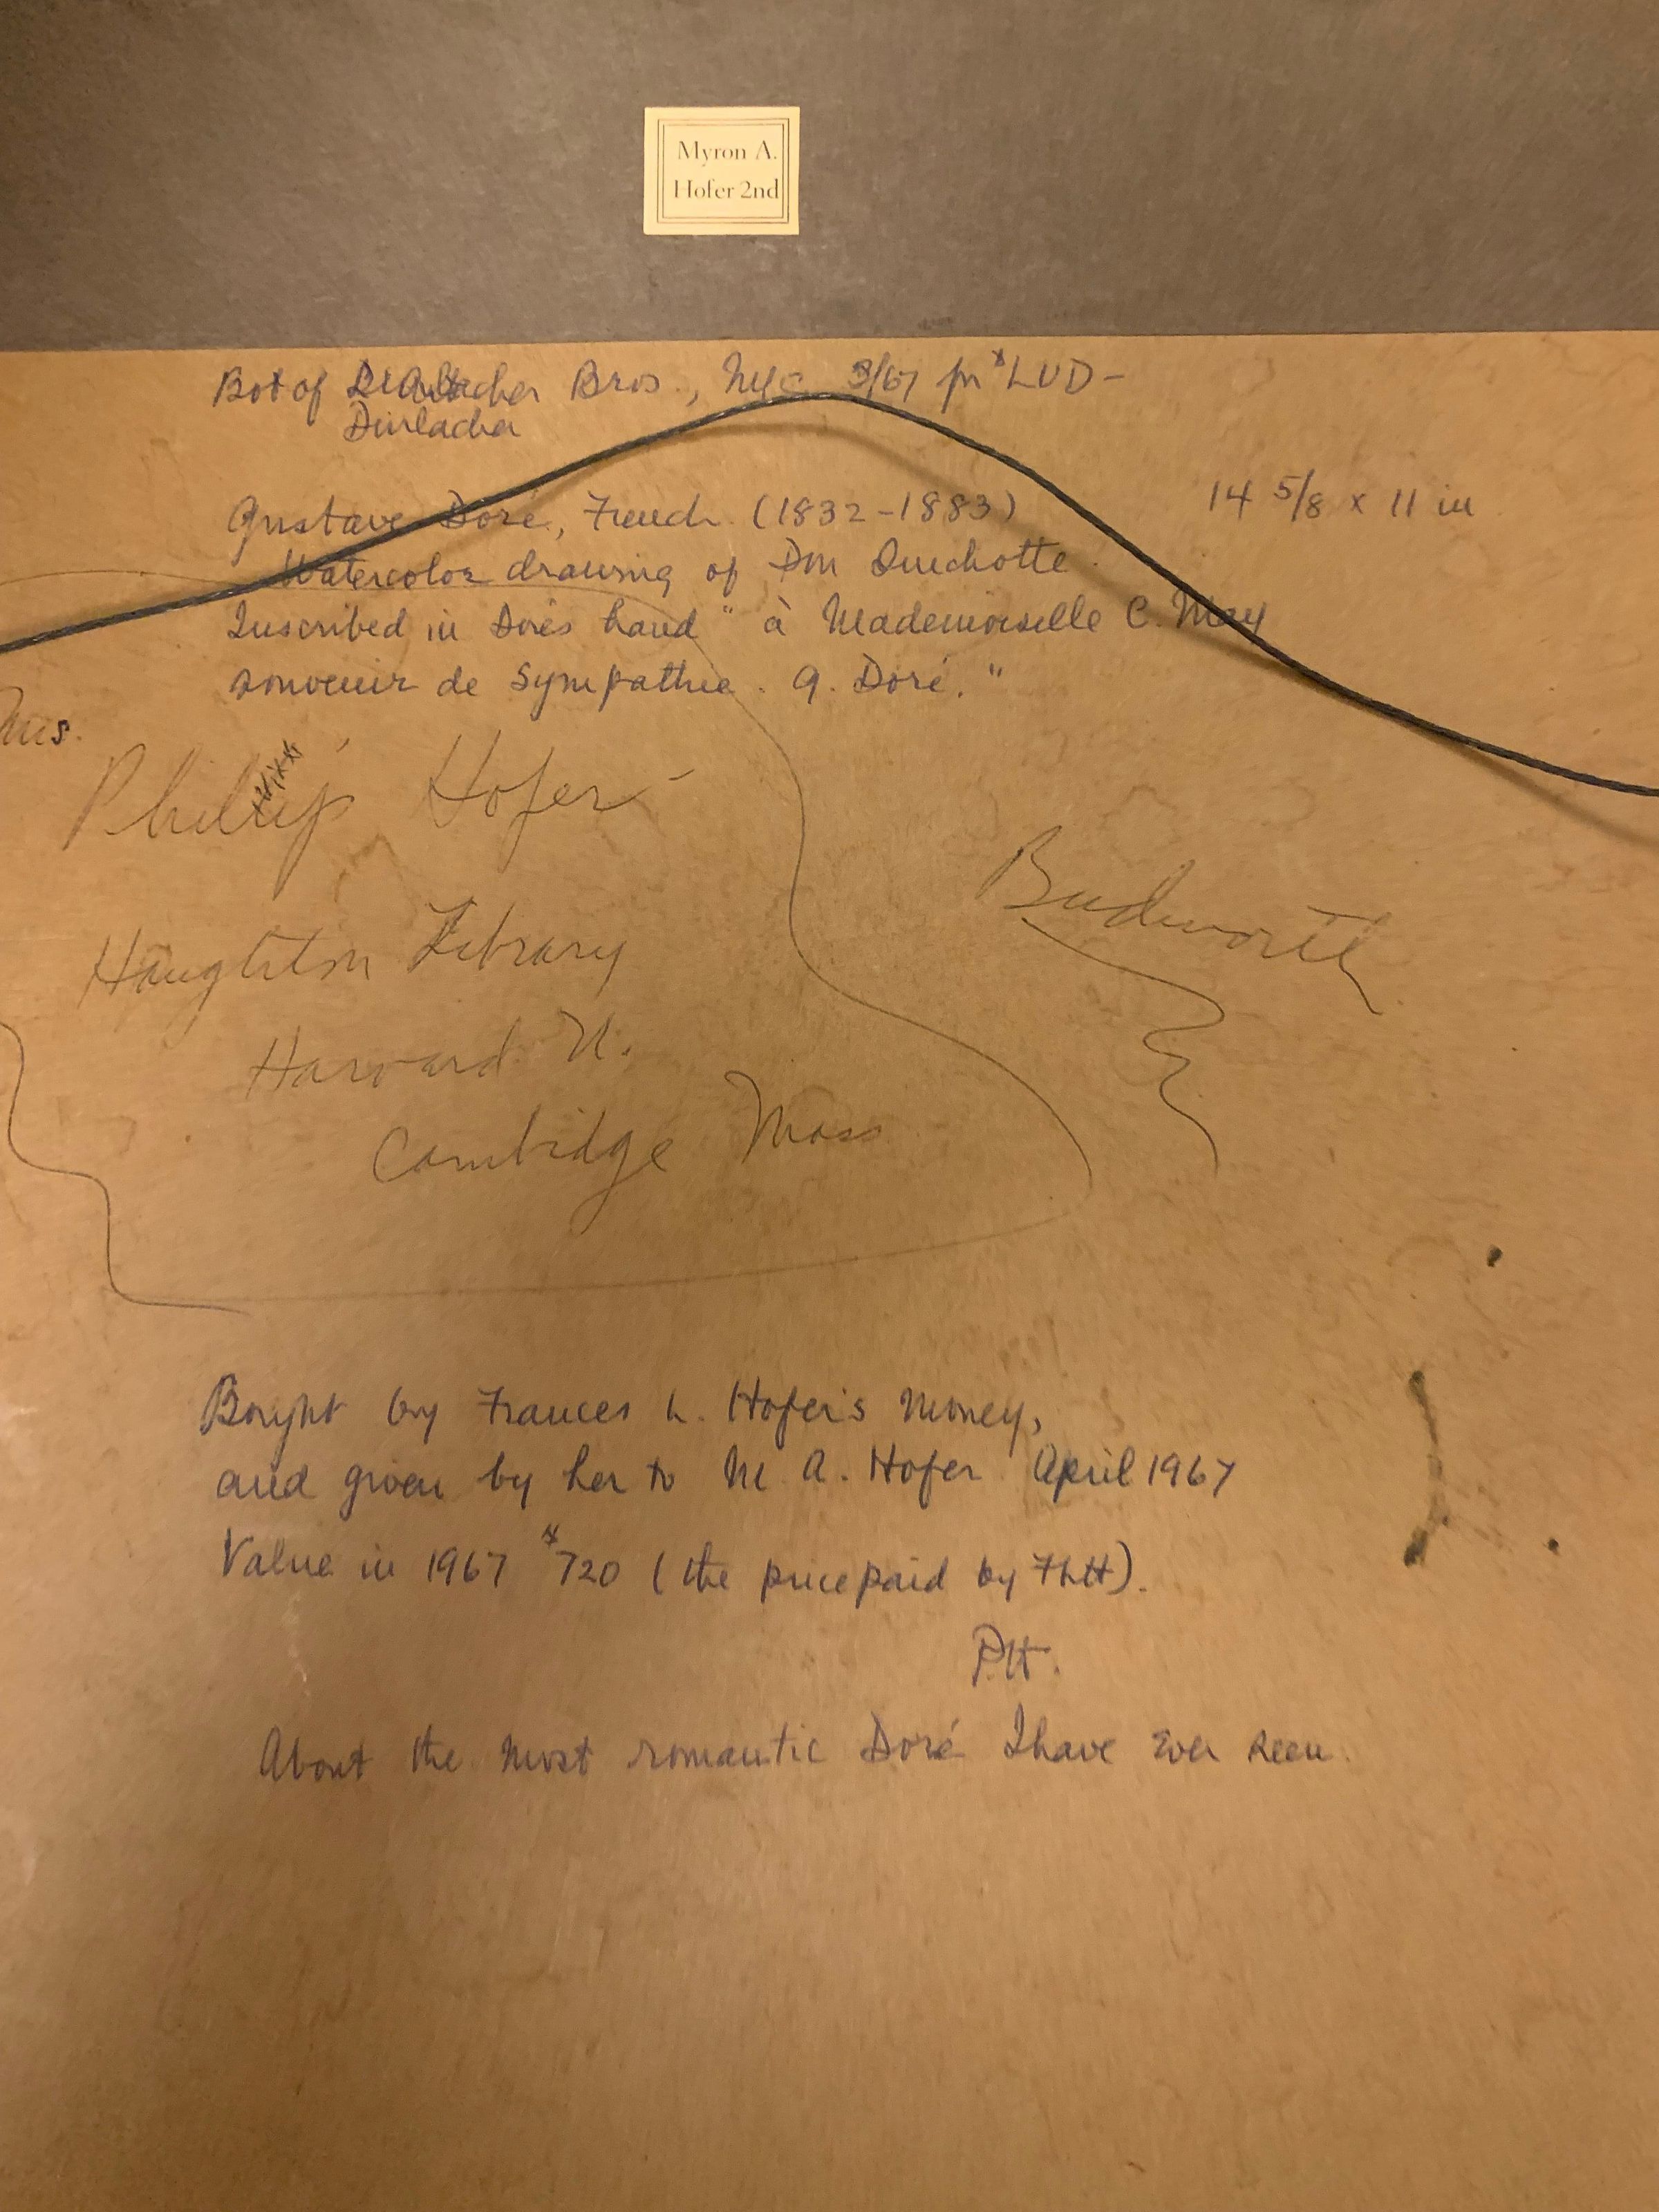 Myron A.
Hofer 2nd
Bot of Bros., NYC 3/67 for $LUD-
Durlacher
Gustave Doré, French (1832-1883) 14 5/8 x 11 in
Watercolor drawing of Don Quichotte.
Inscribed in Doré's hand "à Mademoiselle C. May
souvenir de sympathie. G. Doré."
Mrs.
Philip Hofer
Houghton Library
Harvard U.
Cambridge Mass
Budworth
Bought by Frances L. Hofer's Money,
and given by her to M. A. Hofer April 1967
Value in 1967 $720 (the price paid by FLH).
PH.
About the most romantic Doré I have ever seen.